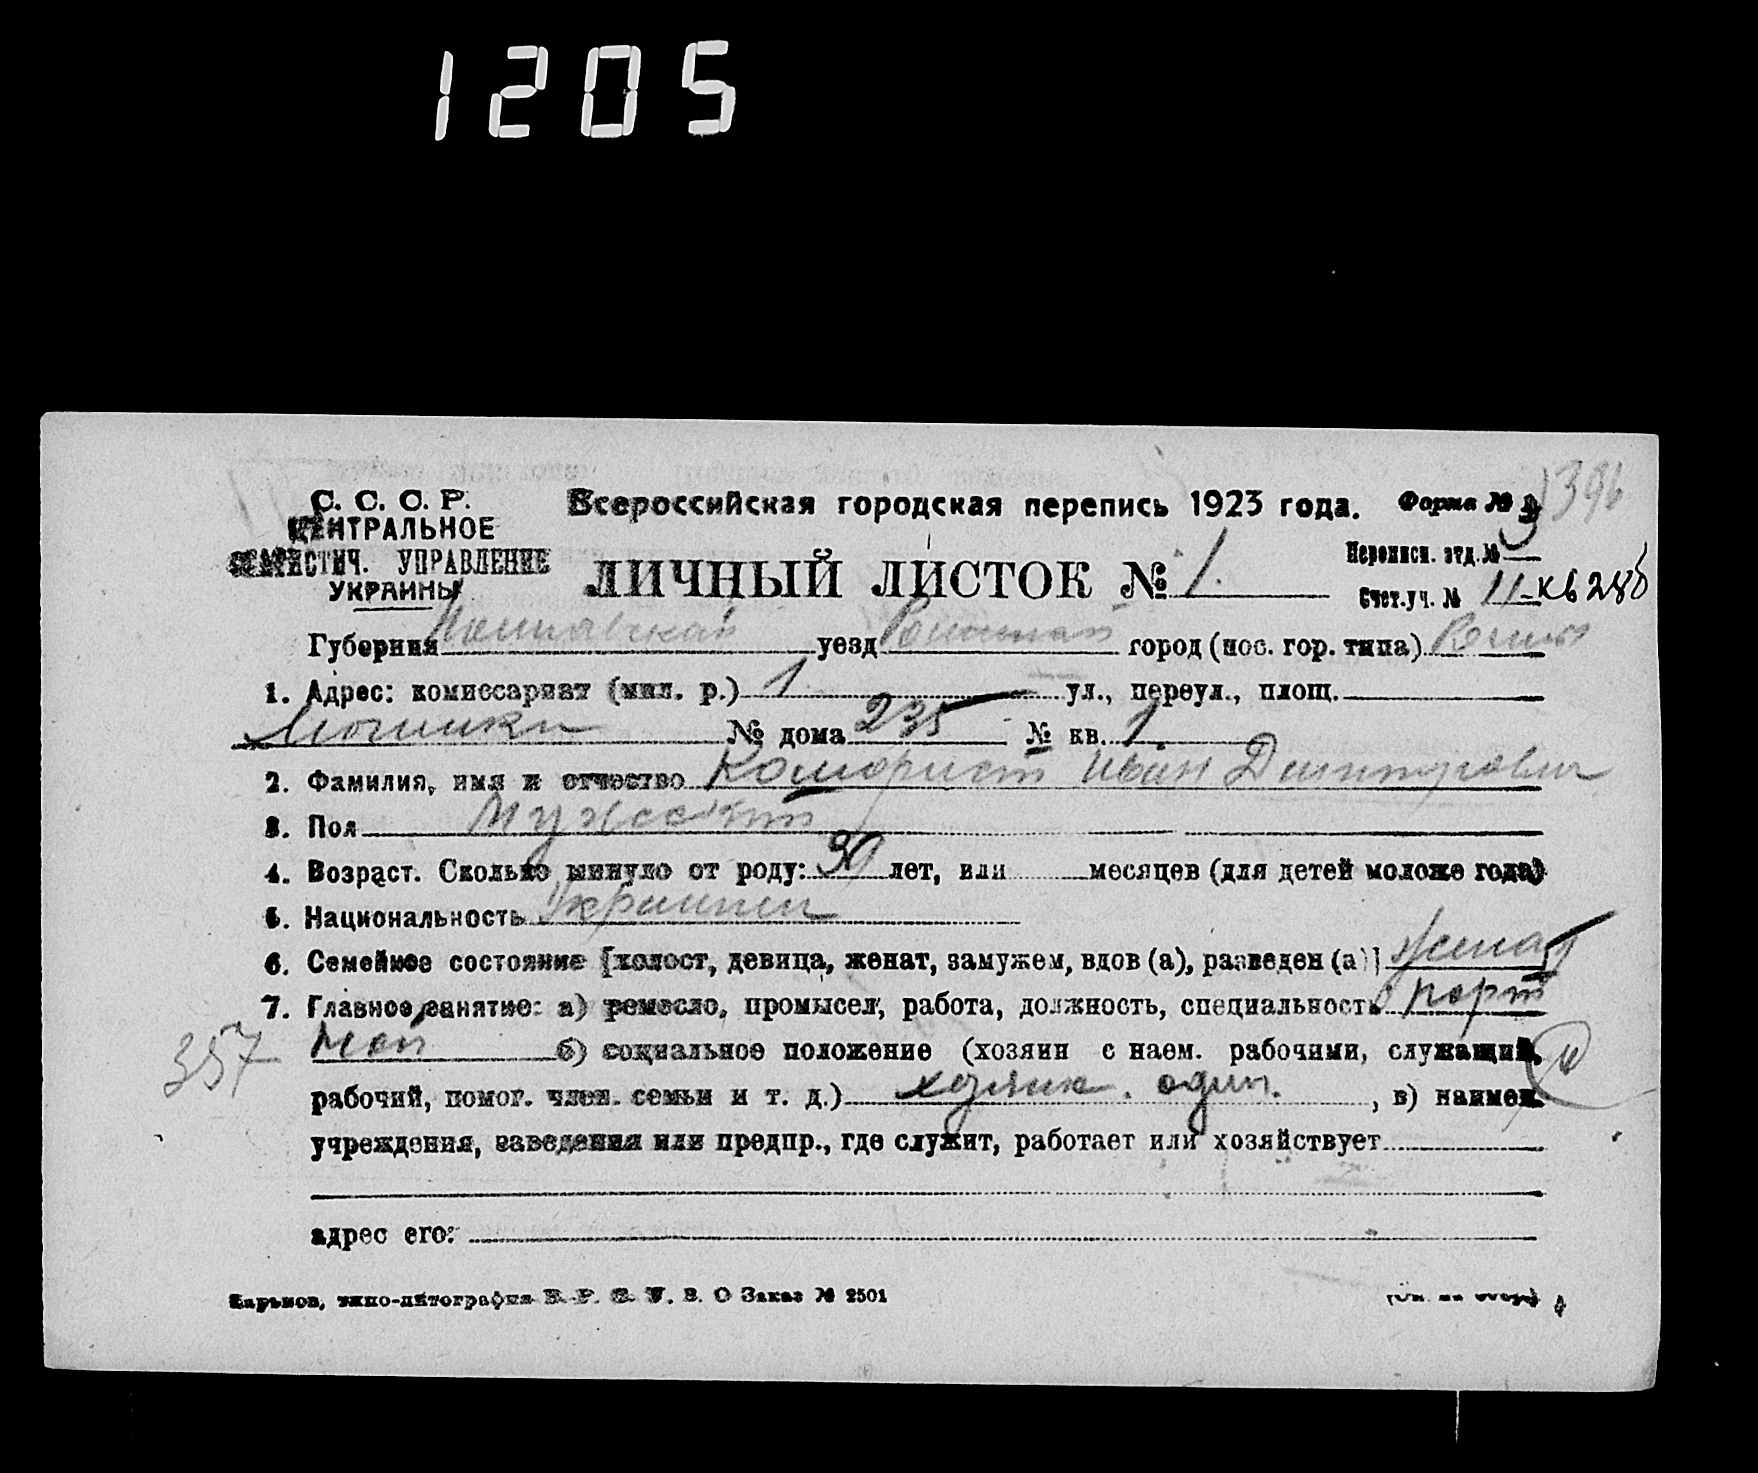 1205
С. С. С. Р.
ЦЕНТРАЛЬНОЕ
СТАТИСТИЧ. УПРАВЛЕНИЕ
УКРАИНЫ
Всероссийская городская перепись 1923 года.
Форма №
396
ЛИЧНЫЙ ЛИСТОК № 1.
Переписн. отд. №
Счет. уч. № 11
Губерния Полтавская уезд город (пос. гор. типа)
1. Адрес: комиссариат (мил. р.) 1 ул., переул., площ.
№ дома 235 № кв. 1
2. Фамилия, имя и отчество Иван Дмитрович
3. Пол Мужской
4. Возраст. Сколько минуло от роду: 30 лет, или месяцев (для детей моложе года)
5. Национальность
6. Семейное состояние [холост, девица, женат, замужем, вдов (а), разведен (а)] женат
7. Главное занятие: а) ремесло, промысел, работа, должность, специальность порт
ной б) социальное положение (хозяин с наем. рабочими, служащий,
357
рабочий, помог. член. семьи и т. д.) хозяин. один. , в) наимен.
учреждения, заведения или предпр., где служит, работает или хозяйствует
адрес его:
Харьков, типо-литография Заказ № 2501